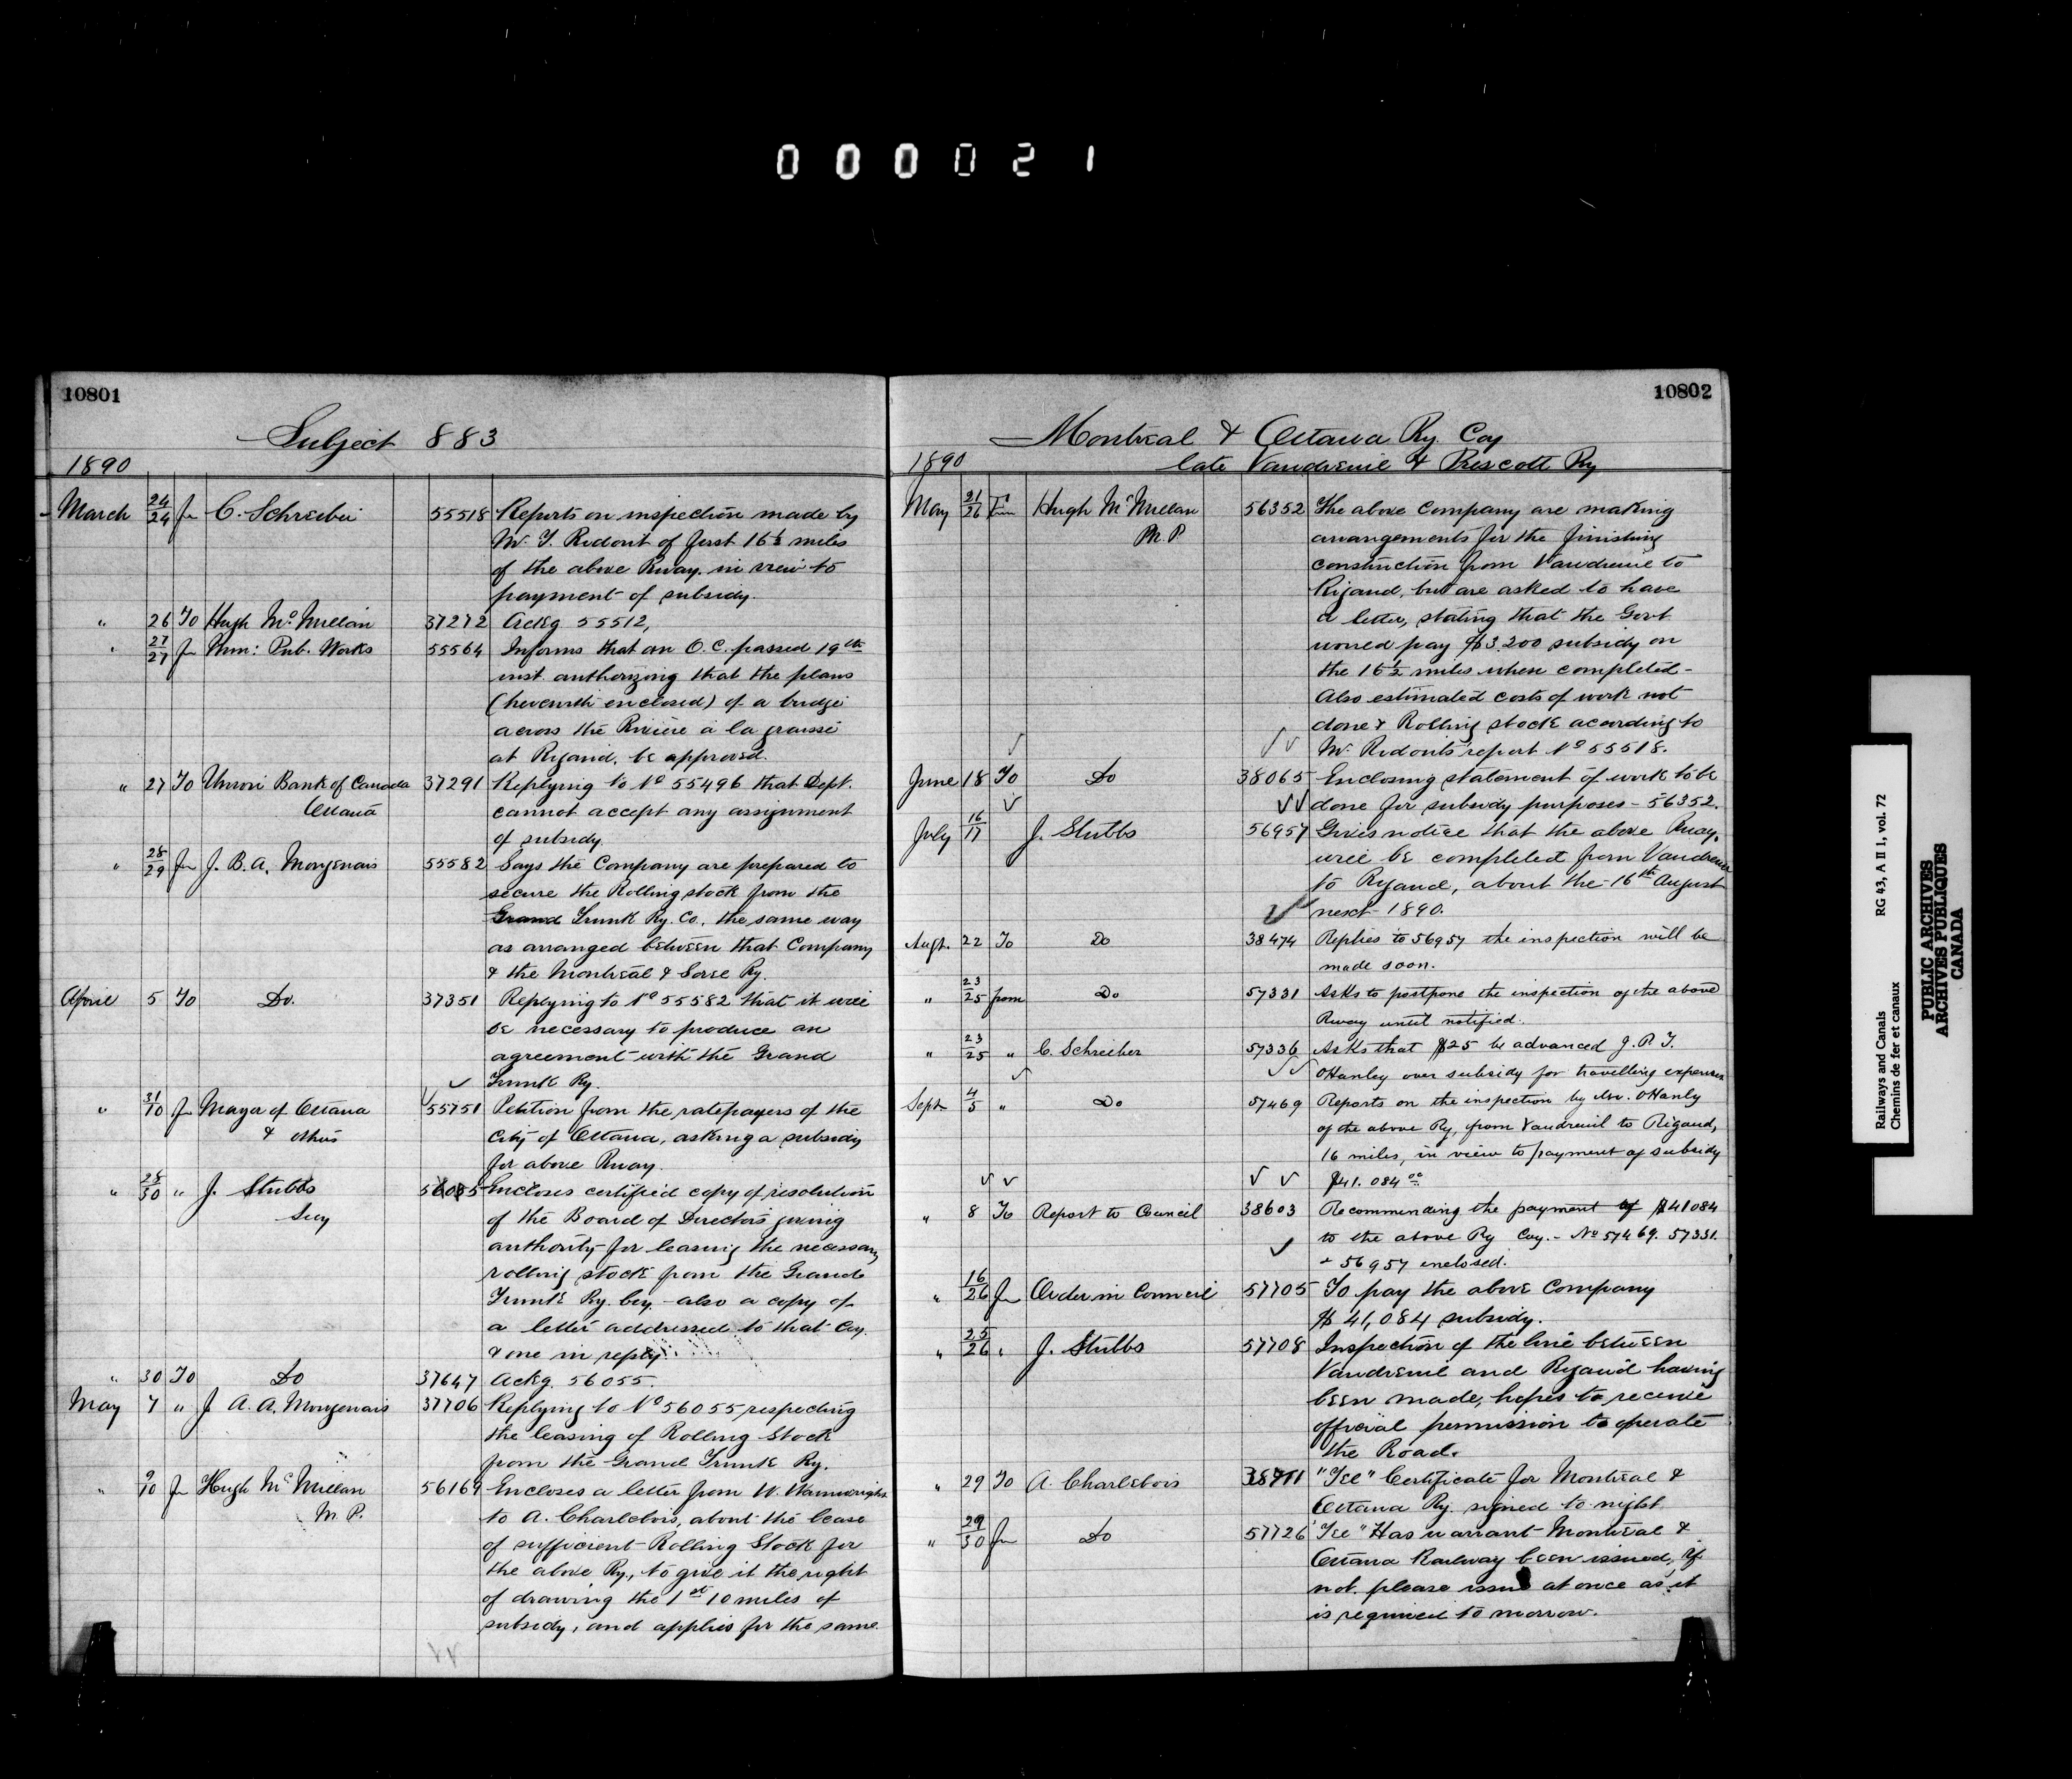 000021
10801
Subject 883
1890
March 24/24 Fm C. Schreiber 55518 Reports on inspection made by
Mr. T. Ridout of first 16½ miles
of the above Rway. in view to
payment of subsidy.
" 26 To Hugh McMillan 37272 Ackg 55512,
" 27/27 Fm Min: Pub. Works 55564 Informs that an O.C. passed 19th
inst. authorizing that the plans
(herewith enclosed) of a bridge
across the Riviere à la graisse
at Rigaud, be approved.
" 27 To Union Bank of Canada 37291 Replying to No 55496 that Dept.
Ottawa cannot accept any assignment
of subsidy.
" 28/29 Fm J. B. A. Mongenais 55582 Says the Company are prepared to
secure the Rolling stock from the
Grand Trunk Ry. Co., the same way
as arranged between that Company
& the Montreal & Sorel Ry.
April 5 To Do. 37351 Replying to No 55582 that it will
be necessary to produce an
agreement with the Grand
Trunk Ry.
" 31/10 Fm Mayor of Ottawa 55751 Petition from the ratepayers of the
& others City of Ottawa, asking a subsidy
for above Rway.
" 25/30 " J. Stubbs Encloses certified copy of resolution
Secy of the Board of Directors giving
authority for leasing the necessary
rolling stock from the Grand
Trunk Ry. Coy. - also a copy of
a letter addressed to that Coy.
& one in reply.
" 30 To Do 37647 Ackg. 56055.
May 7 " J. A. A. Mongenais 37706 Replying to No 56055 respecting
the leasing of Rolling Stock
from the Grand Trunk Ry.
" 9/10 Fm Hugh McMillan 56169 Encloses a letter from W. Wainwright
M.P. to A. Charlebois, about the lease
of sufficient Rolling Stock for
the above Ry., to give it the right
of drawing the 1st 10 miles of
subsidy, and applies for the same.
10802
Montreal & Ottawa Ry. Coy
1890 late Vaudreuil & Prescott Ry
May 21/26 Fm Hugh McMillan 56352 The above Company are making
M.P. arrangements for the finishing
construction from Vaudreuil to
Rigaud, but are asked to have
a letter, stating that the Govt
would pay $3.200 subsidy on
the 16½ miles when completed -
Also estimated costs of work not
done & Rolling stock acording to
Mr. Ridouts report No 55518.
June 18 To Do 38065 Enclosing statement of work to be
done for subsidy purposes - 56352.
July 16/17 J. Stubbs 56957 Gives notice that the above Rway.
will be completed from Vaudreuil
to Rigaud, about the 16th August
next 1890.
Augt. 22 To Do 38474 Replies to 56957 the inspection will be
made soon.
" 23/25 from Do 57331 Asks to postpone the inspection of the above
Rway until notified.
" 23/25 " C. Schreiber 57336 Asks that $25 be advanced J. P. T.
OHanley over subsidy for travelling expenses
Sept 4/5 " Do 57469 Reports on the inspection by Mr. OHanly
of the above Ry, from Vaudreuil to Rigaud,
16 miles, in view to payment of subsidy
$41.084 00
" 8 To Report to Council 38603 Recommending the payment of $41084
to the above Ry Coy. - No 57469. 57331.
+ 56957 enclosed.
" 16/26 Fm Order in Council 57705 To pay the above Company
$41,084 subsidy.
" 25/26 " J. Stubbs 57708 Inspection of the line between
Vaudreuil and Rigaud having
been made, hopes to receive
official permission to operate
the Road.
" 29 To A. Charlebois "Tel" Certificate for Montreal &
Ottawa Ry. signed to night
" 29/30 Fm Do 57726 "Tel" Has warrant Montreal &
Ottawa Railway been issued, if
not please issue at once as it
is required to morrow.
Railways and Canals RG 43, A II 1, vol. 72
Chemins de fer et canaux
PUBLIC ARCHIVES
ARCHIVES PUBLIQUES
CANADA